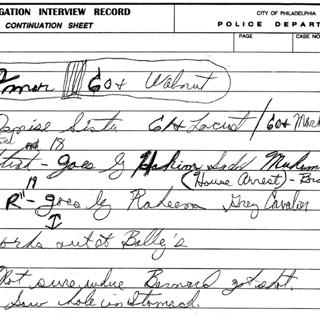 GATION INTERVIEW RECORD
CONTINUATION SHEET
CITY OF PHILADELPHIA
POLICE DEPAR
PAGE
CASE NO
mar 60+ Walnut
Sista 61+ Locust / 60+ Mar
18
goes by Hakim
19 (House Arrest)
R" - goes by Raheem Grey Cavalier
orks out at Bally's
Not sure where Bernard got shot.
Saw hole in stomach.